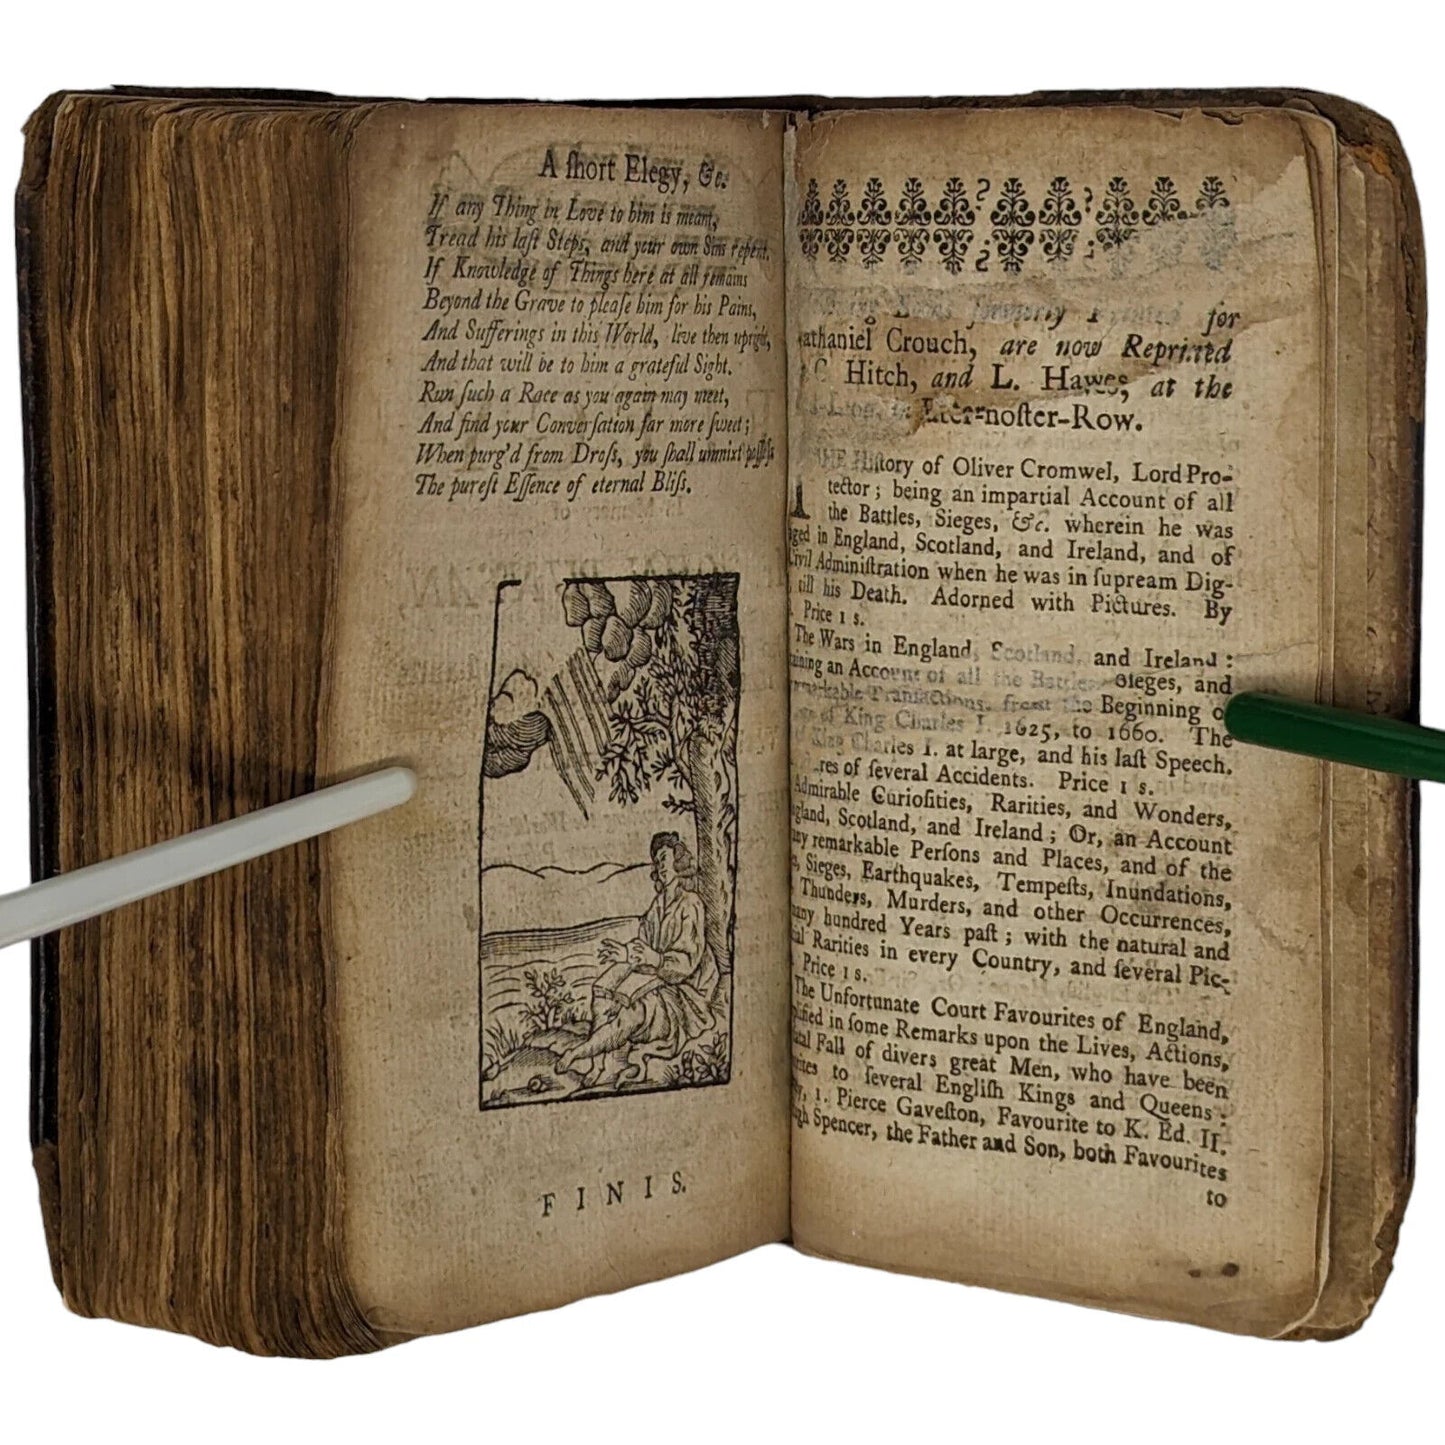 A ſhort Elegy, &c.
If any Thing in Love to him is meant,
Tread his laſt Steps, and your own Sins repent.
If Knowledge of Things here at all remains
Beyond the Grave to pleaſe him for his Pains,
And Sufferings in this World, live then upright,
And that will be to him a grateful Sight.
Run ſuch a Race as you again may meet,
And find your Converſation far more ſweet;
When purg'd from Droſs, you ſhall unmixt poſſeſs
The pureſt Eſſence of eternal Bliſs.
FINIS.
formerly Printed for
athaniel Crouch, are now Reprinted
C Hitch, and L. Hawes, at the
in ter-noſter-Row.
HE Hiſtory of Oliver Cromwel, Lord Pro-
tector; being an impartial Account of all
the Battles, Sieges, &c. wherein he was
ged in England, Scotland, and Ireland, and of
Civil Adminiſtration when he was in ſupream Dig-
till his Death. Adorned with Pictures. By
Price 1 s.
The Wars in England, Scotland, and Ireland:
aining an Account of all the Battles, Sieges, and
markable Tranſactions, from the Beginning o
of King Charles I. 1625, to 1660. The
King Charles I. at large, and his laſt Speech.
res of ſeveral Accidents. Price 1 s.
Admirable Curioſities, Rarities, and Wonders,
gland, Scotland, and Ireland; Or, an Account
ny remarkable Perſons and Places, and of the
Sieges, Earthquakes, Tempeſts, Inundations,
Thunders, Murders, and other Occurrences,
any hundred Years paſt; with the natural and
ial Rarities in every Country, and ſeveral Pic-
Price 1 s.
The Unfortunate Court Favourites of England,
plified in ſome Remarks upon the Lives, Actions,
atal Fall of divers great Men, who have been
rites to ſeveral Engliſh Kings and Queens:
1. Pierce Gaveſton, Favourite to K. Ed. II.
gh Spencer, the Father and Son, both Favourites
to